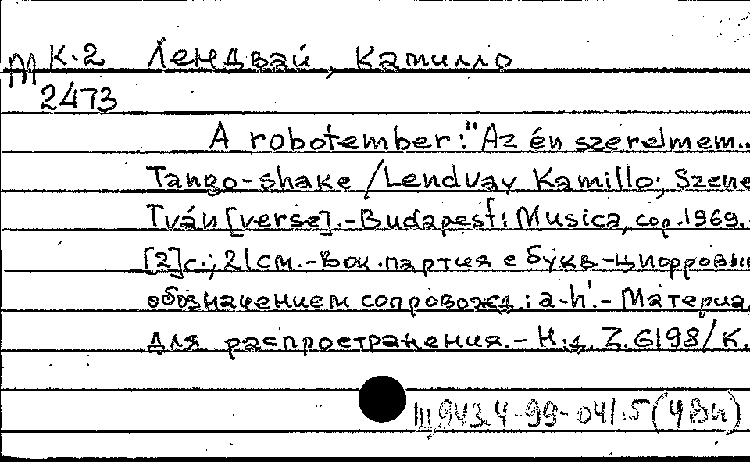 М К.2 Лендвай, Камилло
2473
A robotember: "Az én szerelmem..
Tango-shake / Lendvay Kamillo; Szene
Iván [verse]. - Budapest: Musica, cop. 1969. -
[2]с.; 21см. - Вок. партия с букв.-цифровы
обозначением сопровожд.: a-h'. - Материа
для распространения. - Н.д. Z.6198/K.
Ш943.4-99-041.5(4Вн)